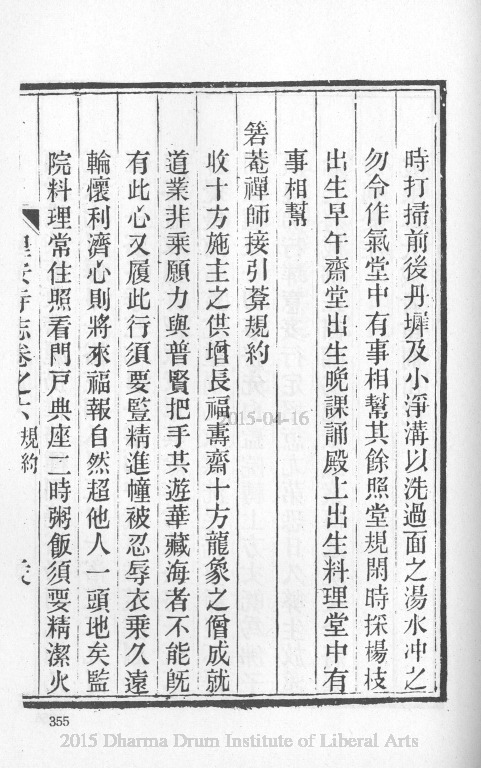 時打掃前後丹墀及小淨溝以洗過面之湯水冲之
勿令作氣堂中有事相幫其餘照堂規閑時採楊枝
出生早午齋堂出生晚課誦殿上出生料理堂中有
事相幫
箬菴禪師接引莽規約
收十方施主之供增長福壽齋十方龍象之僧成就
道業非乘願力與普賢把手共遊華藏海者不能旣
有此心又履此行須要豎精進幢被忍辱衣乘久遠
輪懷利濟心則將來福報自然超他人一頭地矣監
院料理常住照看門戸典座二時粥飯須要精潔火
寺志卷之六 規約
355
2015-04-16
2015 Dharma Drum Institute of Liberal Arts